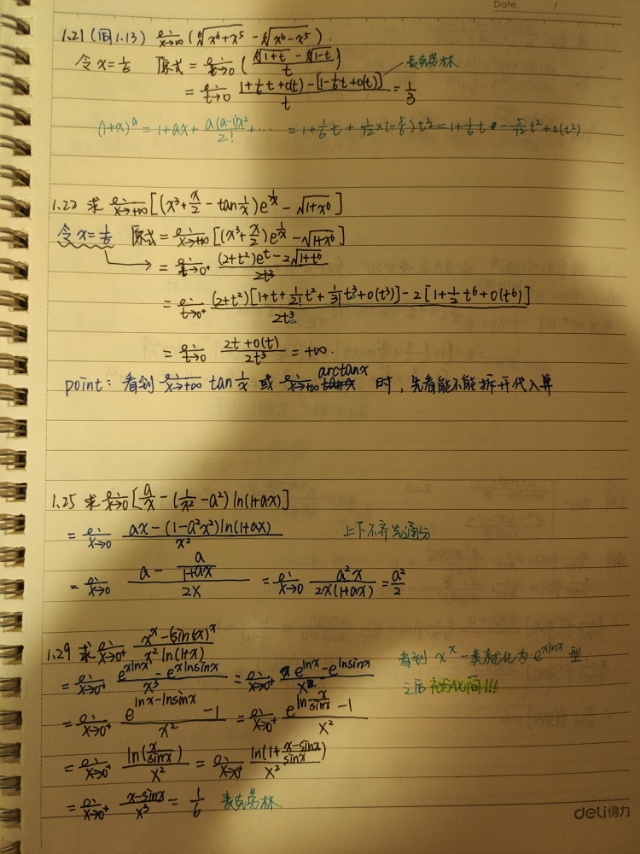 Date. /
1.21 (同1.13) lim x→+∞ (⁶√(x⁶+x⁵) - ⁶√(x⁶-x⁵)).
令 x=1/t 原式 = lim t→0 (⁶√(1+t) - ⁶√(1-t))/t
= lim t→0 (1+1/6 t+o(t)-[1-1/6 t+o(t)])/t = 1/3 麦克劳林
(1+x)^a = 1+ax+a(a-1)x²/2!+⋯ = 1+1/6 t+
1.22 求 lim x→+∞ [(x³+x/2-tan 1/x)e^(1/x)-√(1+x⁶)]
令 x=1/t 原式 = lim x→+∞ [(x³+x/2)e^(1/x)-√(1+x⁶)]
= lim t→0⁺ ((2+t²)e^t-2√(1+t⁶))/2t³
= lim t→0⁺ ((2+t²)[1+t+1/2! t²+1/3! t³+o(t³)]-2[1+1/2 t⁶+o(t⁶)])/2t³
= lim t→0 (2t+o(t))/2t³ = +∞.
point: 看到 lim x→+∞ tan 1/x 或 lim x→+∞ arctanx 时, 先看能不能拆开代入算
1.25 求 lim x→0 [a/x-(1/x²-a²)ln(1+ax)]
= lim x→0 (ax-(1-a²x²)ln(1+ax))/x² 上下不齐先通分
= lim x→0 (a-a/(1+ax))/2x = lim x→0 a²x/2x(1+ax) = a²/2
1.29 求 lim x→0⁺ (x^x-(sinx)^x)/x²ln(1+x)
= lim x→0⁺ (e^(xlnx)-e^(xlnsinx))/x³ = lim x→0⁺ (e^(lnx)-e^(lnsinx))/x² 看到 x^x 一类就化为 e^(xlnx) 型
之后充分化简!!!
= lim x→0⁺ (e^(lnx-lnsinx)-1)/x² = lim x→0⁺ (e^(ln x/sinx)-1)/x²
= lim x→0⁺ ln(x/sinx)/x² = lim x→0⁺ ln(1+(x-sinx)/sinx)/x²
= lim x→0⁺ (x-sinx)/x³ = 1/6 麦克劳林
deli得力